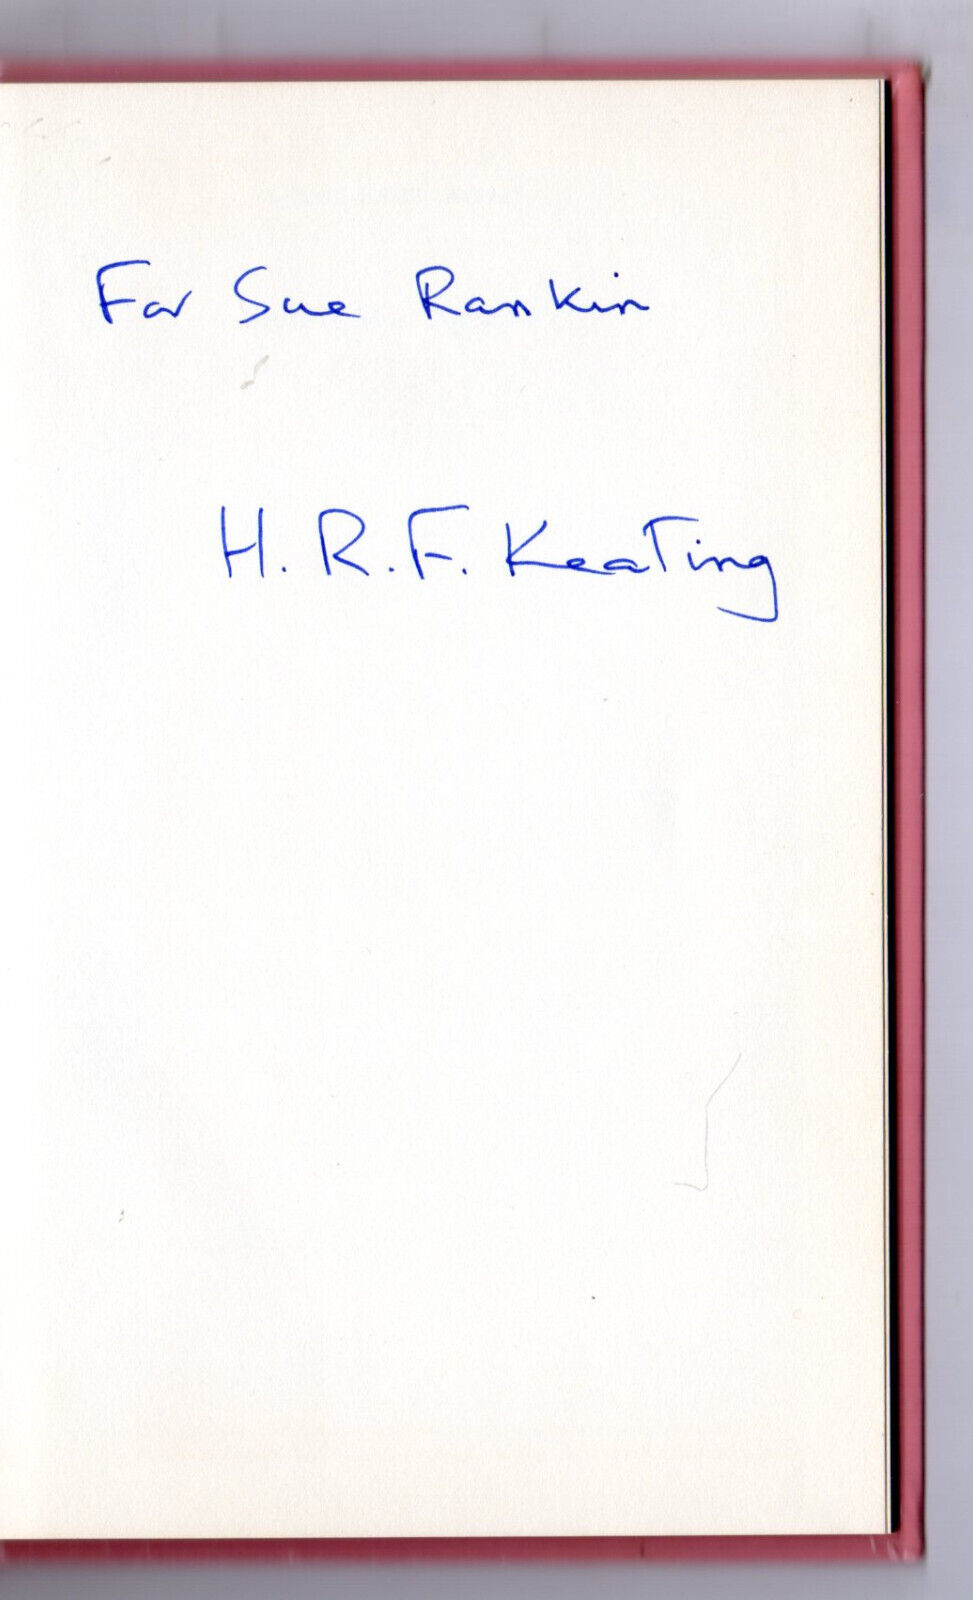 For Sue Rankin
H. R. F. Keating